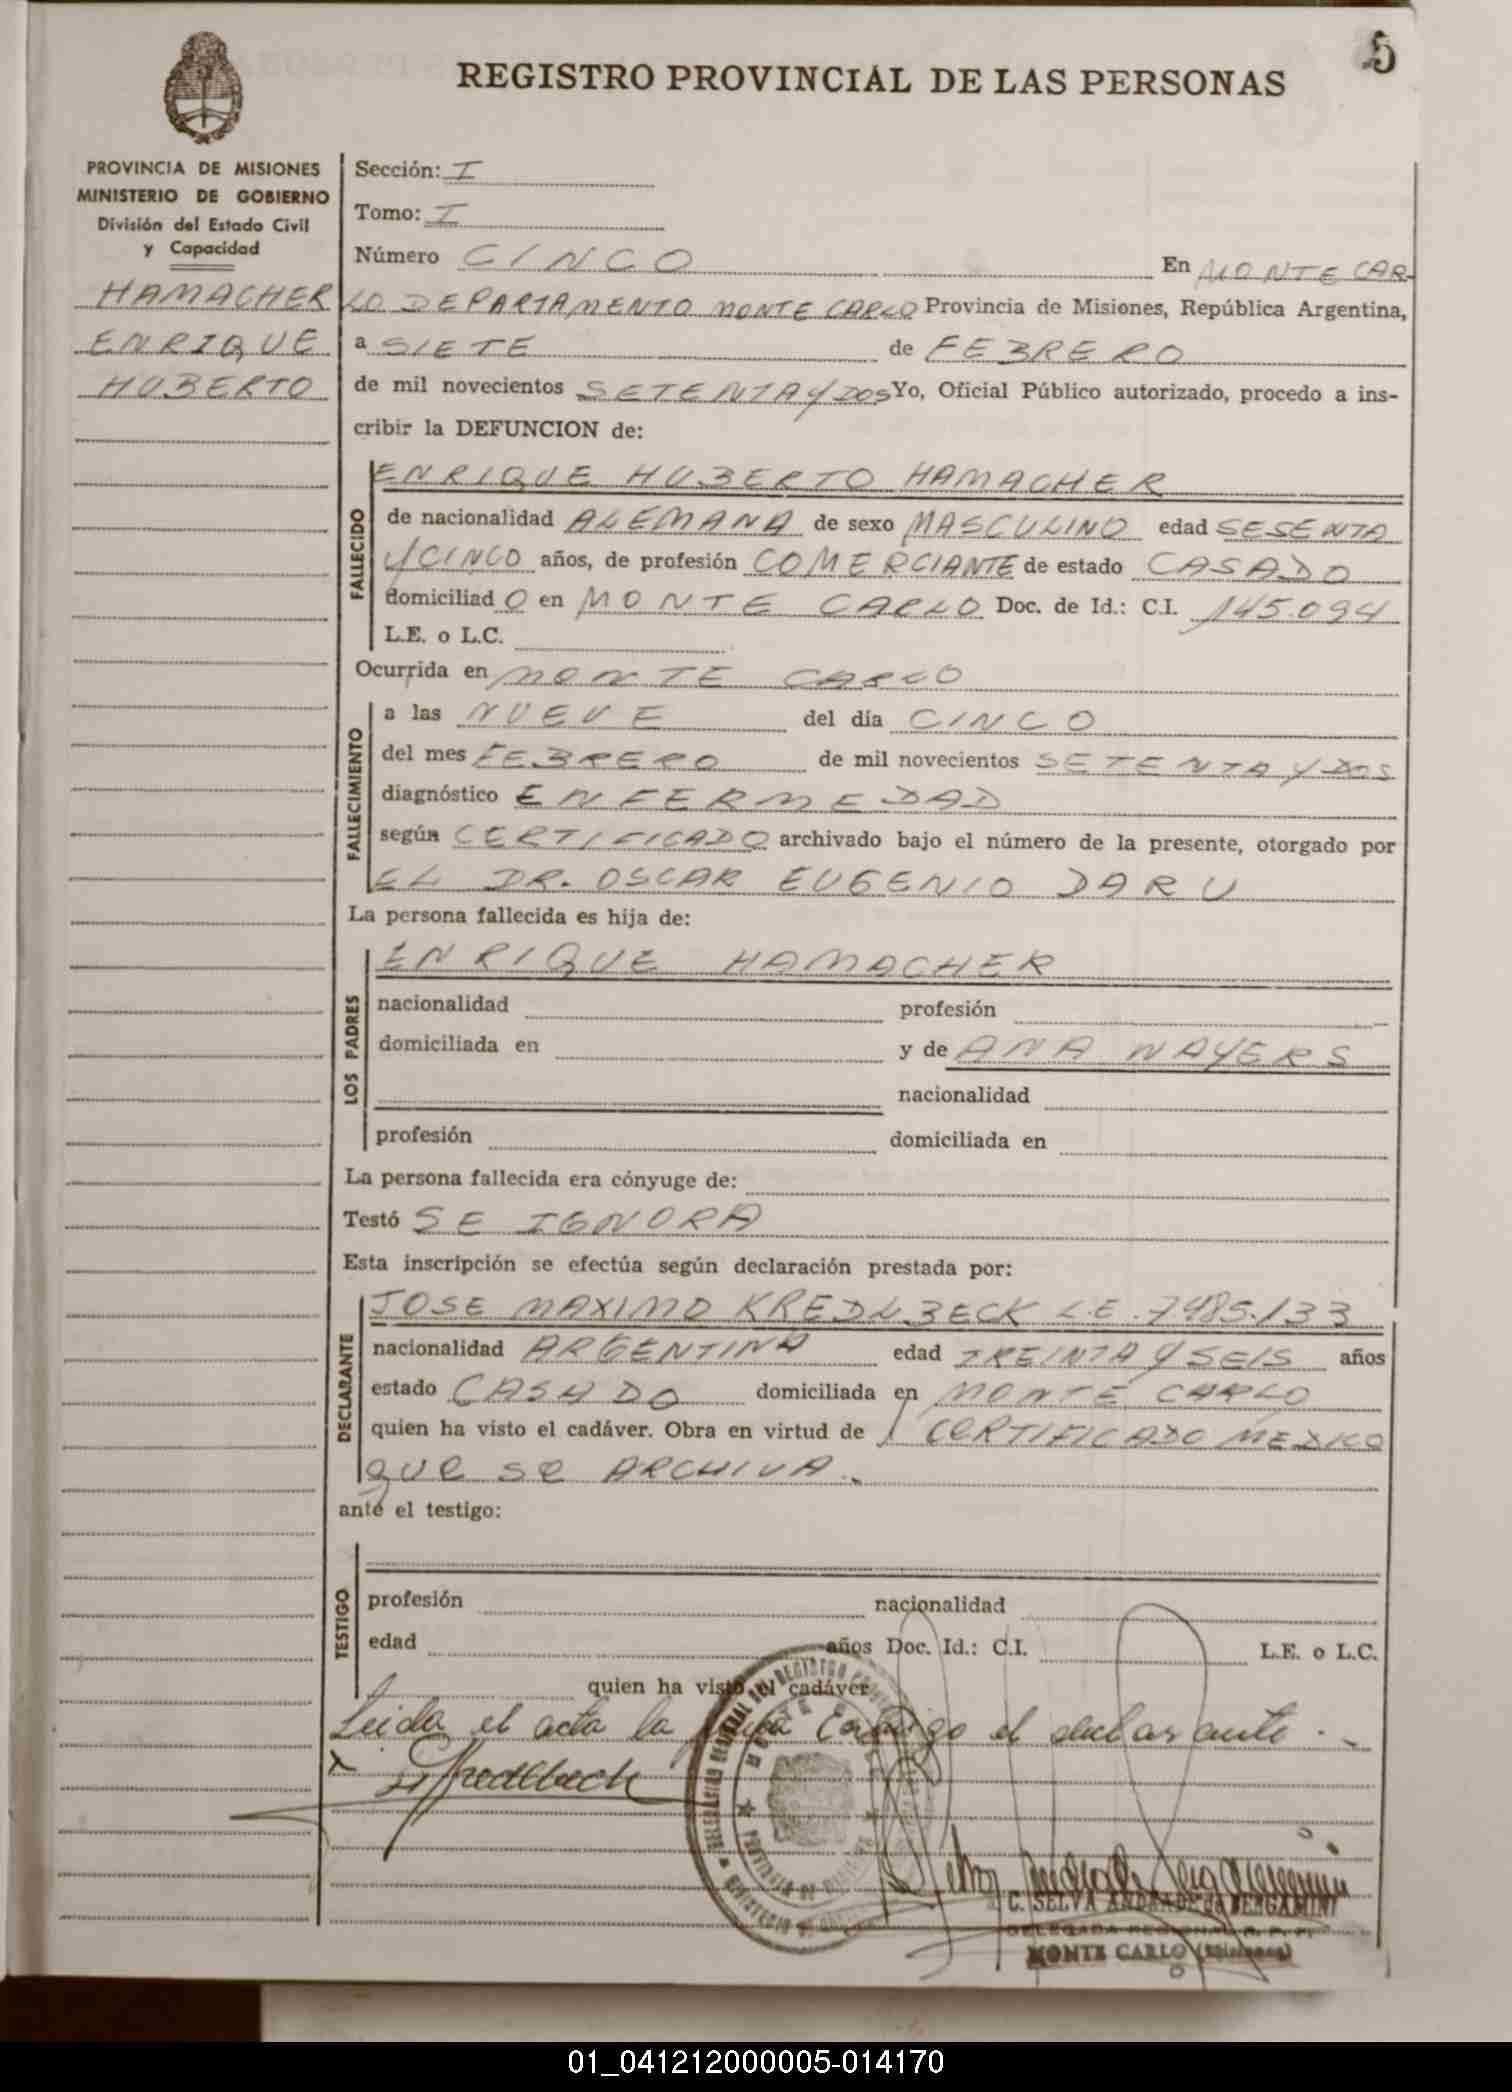 5
REGISTRO PROVINCIAL DE LAS PERSONAS
PROVINCIA DE MISIONES
MINISTERIO DE GOBIERNO
División del Estado Civil
y Capacidad
HAMACHER
ENRIQUE
HUBERTO
Sección: I
Tomo: I
Número CINCO En MONTE CAR-
LO DEPARTAMENTO MONTE CARLO Provincia de Misiones, República Argentina,
a SIETE de FEBRERO
de mil novecientos SETENTA Y DOS Yo, Oficial Público autorizado, procedo a ins-
cribir la DEFUNCION de:
FALLECIDO
ENRIQUE HUBERTO HAMACHER
de nacionalidad ALEMANA de sexo MASCULINO edad SESENTA
Y CINCO años, de profesión COMERCIANTE de estado CASADO
domiciliad O en MONTE CARLO Doc. de Id.: C.I. 145.094
L.E. o L.C.
Ocurrida en MONTE CARLO
FALLECIMIENTO
a las NUEVE del día CINCO
del mes FEBRERO de mil novecientos SETENTA Y DOS
diagnóstico ENFERMEDAD
según CERTIFICADO archivado bajo el número de la presente, otorgado por
EL DR. OSCAR EUGENIO DARU
La persona fallecida es hija de:
LOS PADRES
ENRIQUE HAMACHER
nacionalidad profesión
domiciliada en y de ANA WAYERS
nacionalidad
profesión domiciliada en
La persona fallecida era cónyuge de:
Testó SE IGNORA
Esta inscripción se efectúa según declaración prestada por:
DECLARANTE
JOSE MAXIMO KREDLBECK L.E. 7485.133
nacionalidad ARGENTINA edad TREINTA Y SEIS años
estado CASADO domiciliada en MONTE CARLO
quien ha visto el cadáver. Obra en virtud de CERTIFICADO MEDICO
QUE SE ARCHIVA.
ante el testigo:
TESTIGO
profesión nacionalidad
edad años Doc. Id.: C.I. L.E. o L.C.
quien ha visto el cadáver
Leida el acta la firma conmigo el declarante.-
C. SELVA ANDRADE de BERGAMINI
DELEGADA REGIONAL R. P. P.
MONTE CARLO (Misiones)
01_041212000005-014170